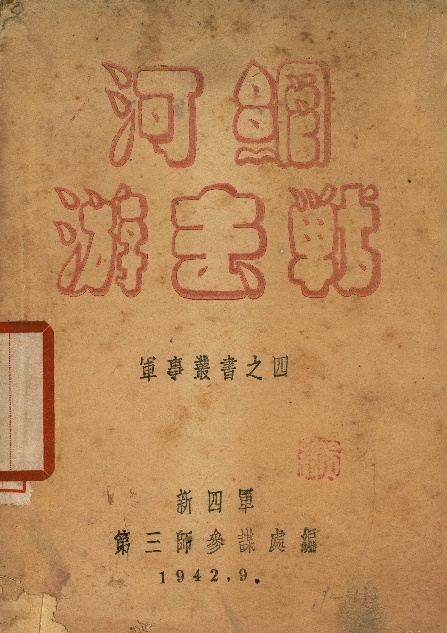 河網
游击戦
軍事叢書之四
新四軍
第三師參謀處編
1942.9.